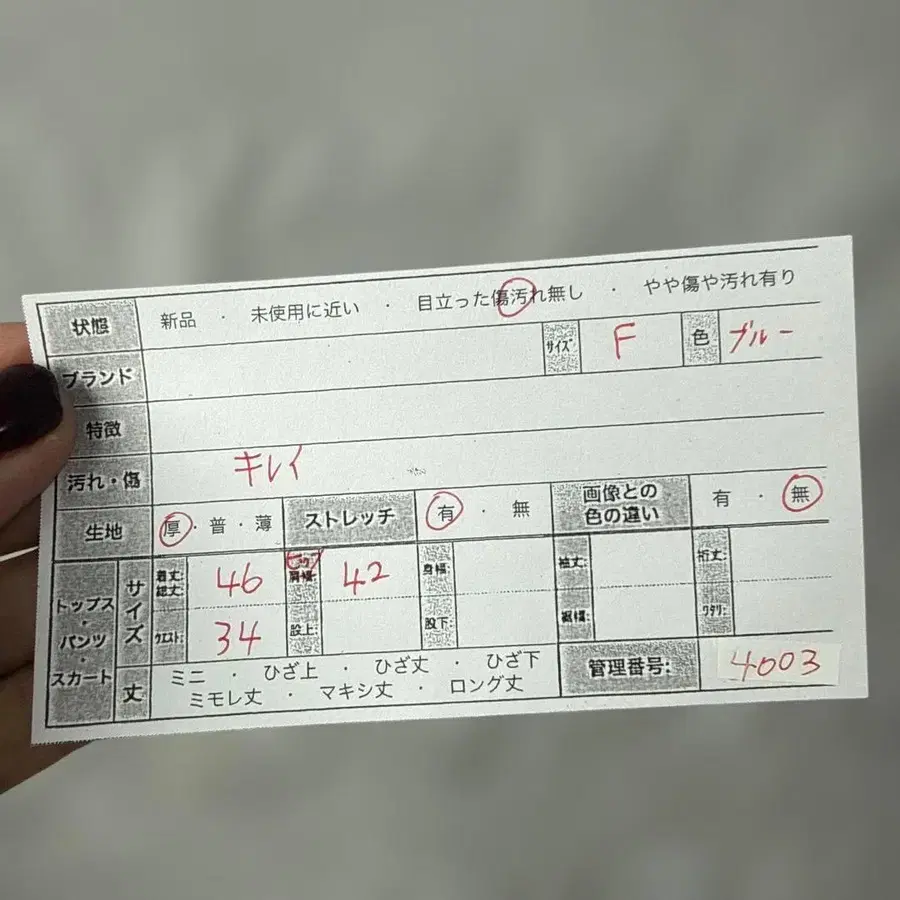 状態 新品 ・ 未使用に近い ・ 目立った傷汚れ無し ・ やや傷や汚れ有り
ブランド サイズ F 色 ブルー
特徴
汚れ・傷 キレイ
生地 厚・普・薄 ストレッチ 有 ・ 無 画像との色の違い 有 ・ 無
トップス・パンツ・スカート サイズ 着丈: 総丈: 46 ヒップ 肩幅: 42 身幅: 袖丈: 裄丈:
ウエスト: 34 股上: 股下: 裾幅: ワタリ:
丈 ミニ ・ ひざ上 ・ ひざ丈 ・ ひざ下
ミモレ丈 ・ マキシ丈 ・ ロング丈
管理番号: 4003